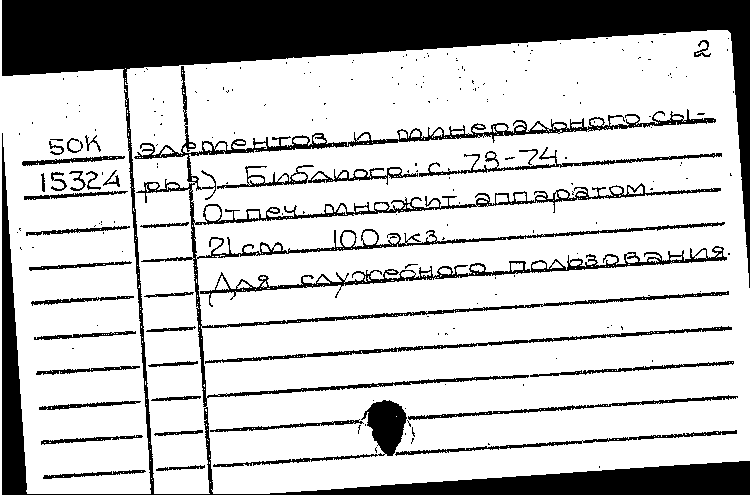 2
50К элементов и минерального сы-
15324 рья). Библиогр.: с. 73-74.
Отпеч. множит. аппаратом.
21 см. 100 экз.
Для служебного пользования.